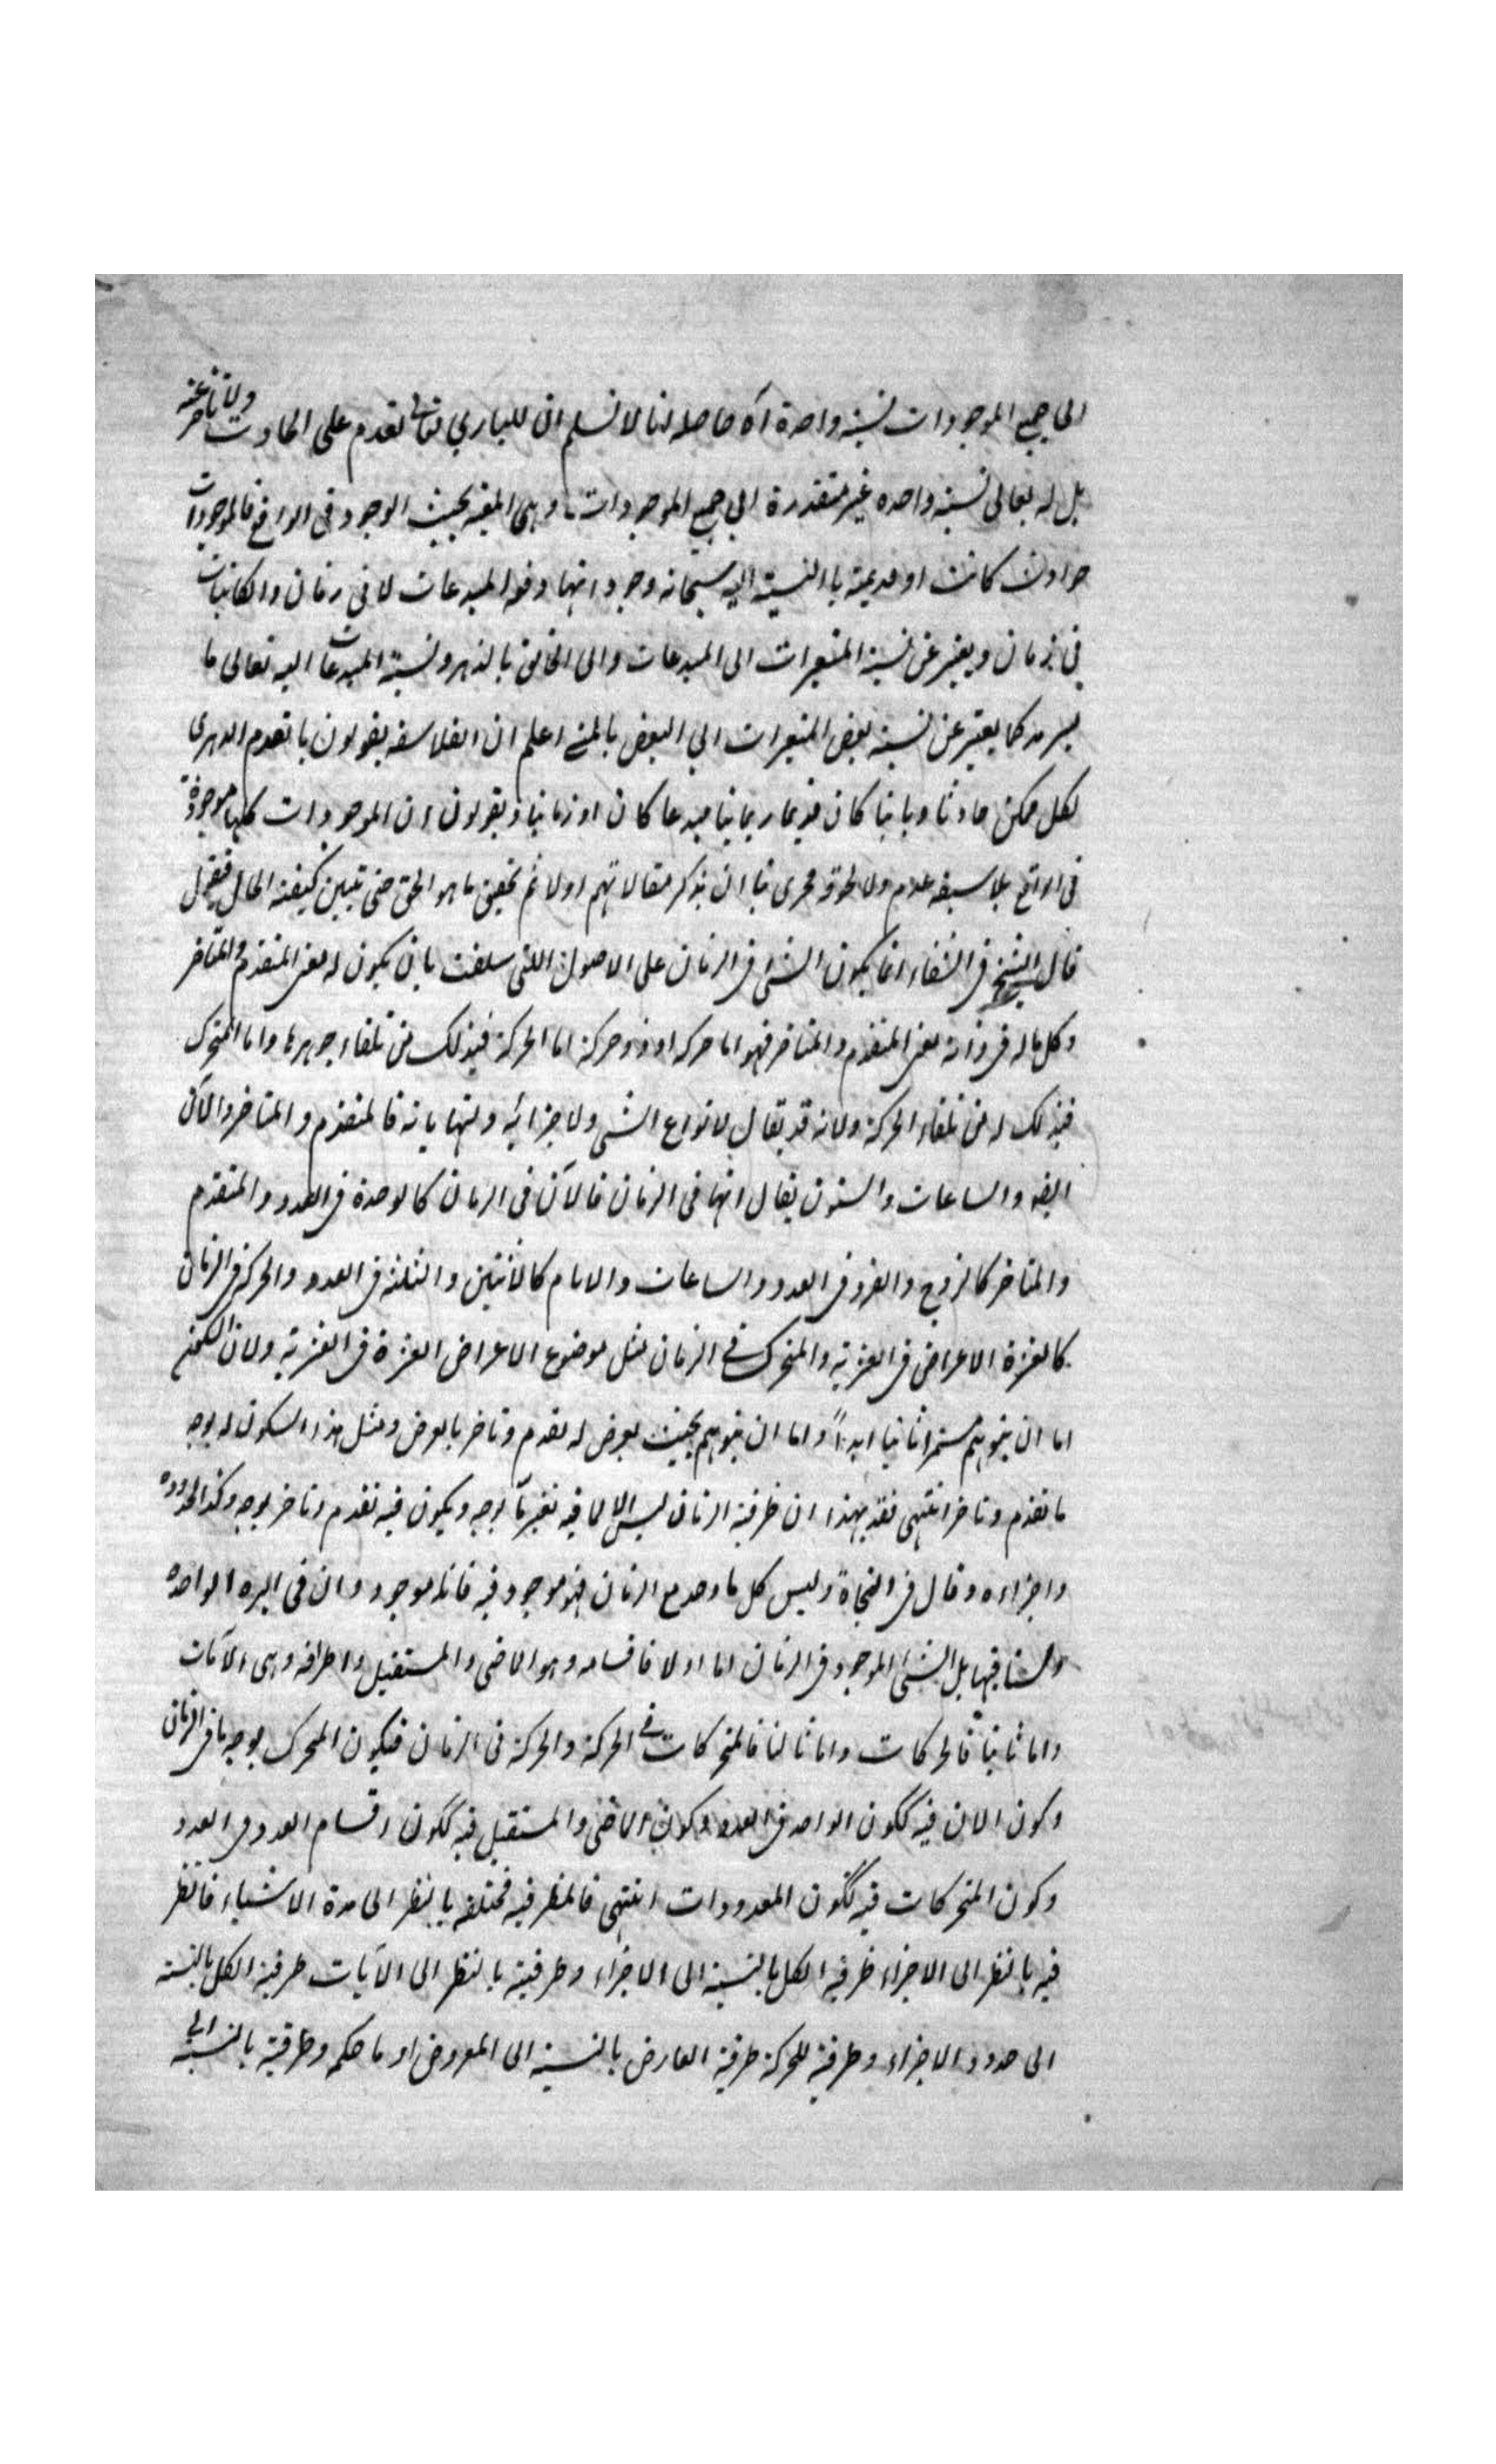 الى جميع الموجودات نسبة واحدة آه حاصله انا لا نسلم ان للباري تعالى تقدم على الحادث ولا تاخر عنه
بل له تعالى نسبة واحده غير متقدرة الى جميع الموجودات وهى المعية بحيث الوجود فى الواقع فالموجودات
حوادث كانت او قديمة باالنسبة اليه سبحانه وجوداتها دفعة المبدعات لا فى زمان والكائنات
فى زمان ويعبر عن نسبة المتغيرات الى المبدعات والى الخالق بالدهر ونسبة المبدعات اليه تعالى ما
لسرمد كما يعبر عن نسبة بعض المتغيرات الى البعض بالمتى اعلم ان الفلاسفه يقولون باتقدم الدهرى
لكل ممكن حادثا وبانيا كان قديما مبدعا كان او زمانيا ويقولون ان الموجودات كلها موجودة
فى الواقع بلا سبقه عدم ولا لحوقه فحرى بنا ان نذكر مقالاتهم اولا ثم تحقيق ما هو الحق حتى تتبين كيفية الحال فنقول
قال الشيخ فى الشفاء انما يكون الشئ فى الزمان على الاصول اللتى سلفت بان يكون له معنى المتقدم والمتاخر
وكل ما له فى ذاته معنى المتقدم والمتاخر فهو اما حركه او ذو حركة اما الحركة فبذلك من تلقاء جوهرها واما المتحرك
فبذلك له من تلقاء الحركة ولانه قد يقال لانواع الشى ولاجزائه ونهاياته فالمتقدم والمتاخر والآن
ايضه والساعات والسنون يقال انها فى الزمان فالآن فى الزمان كالوحدة فى العدد والمتقدم
والمتاخر كالزوج والفرد فى العدد والساعات والايام كالاثنين والثلثة فى العدد والحركة فى الزمان
كالعشرة الاعراض فى العشرية والمتحرك فى الزمان مثل موضوع الاعراض العشرة فى العشرية ولان السكون
اما ان يتوهم مستمرا ثابتا ابداً واما ان يتوهم بحيث يعرض له تقدم وتاخر بالعرض ومثل هذا السكون له بوجه
ما تقدم وتاخر انتهى فقد بهذا ان ظرفية الزمان ليس الا لما فيه تغير ما بوجه ويكون فيه تقدم وتاخر بوجه وكذا لحدوده
واجزاءه وقال فى النجاة وليس كل ما وجد مع الزمان فهو موجود فيه فانا موجودون فى البره الواحده
ولسنا فيها بل الشئ الموجود فى الزمان اما اولا فاقسامه وهو الماضى والمستقبل واطرافه وهى الآنات
واما ثانيا فالحركات واما ثالثا فالمتحركات فى الحركة والحركة فى الزمان فيكون المتحرك بوجه ما فى الزمان
وكون الان فيه ككون الواحد فى العدد وكون الماضى والمستقبل فيه ككون اقسام العدد فى العدد
وكون المتحركات فيه ككون المعدودات انتهى فالظرفية مختلفه بالنظر الى مدة الاشياء فالظر
فيه بالنظر الى الاجزاء ظرفية الكل بالنسبة الى الاجزاء وظرفيته بالنظر الى الآنات ظرفية الكل بالنسبة
الى حدود الاجزاء وظرفية للحركة ظرفية العارض بالنسبة الى المعروض او ما حكمه وظرفية بالنسبة الى